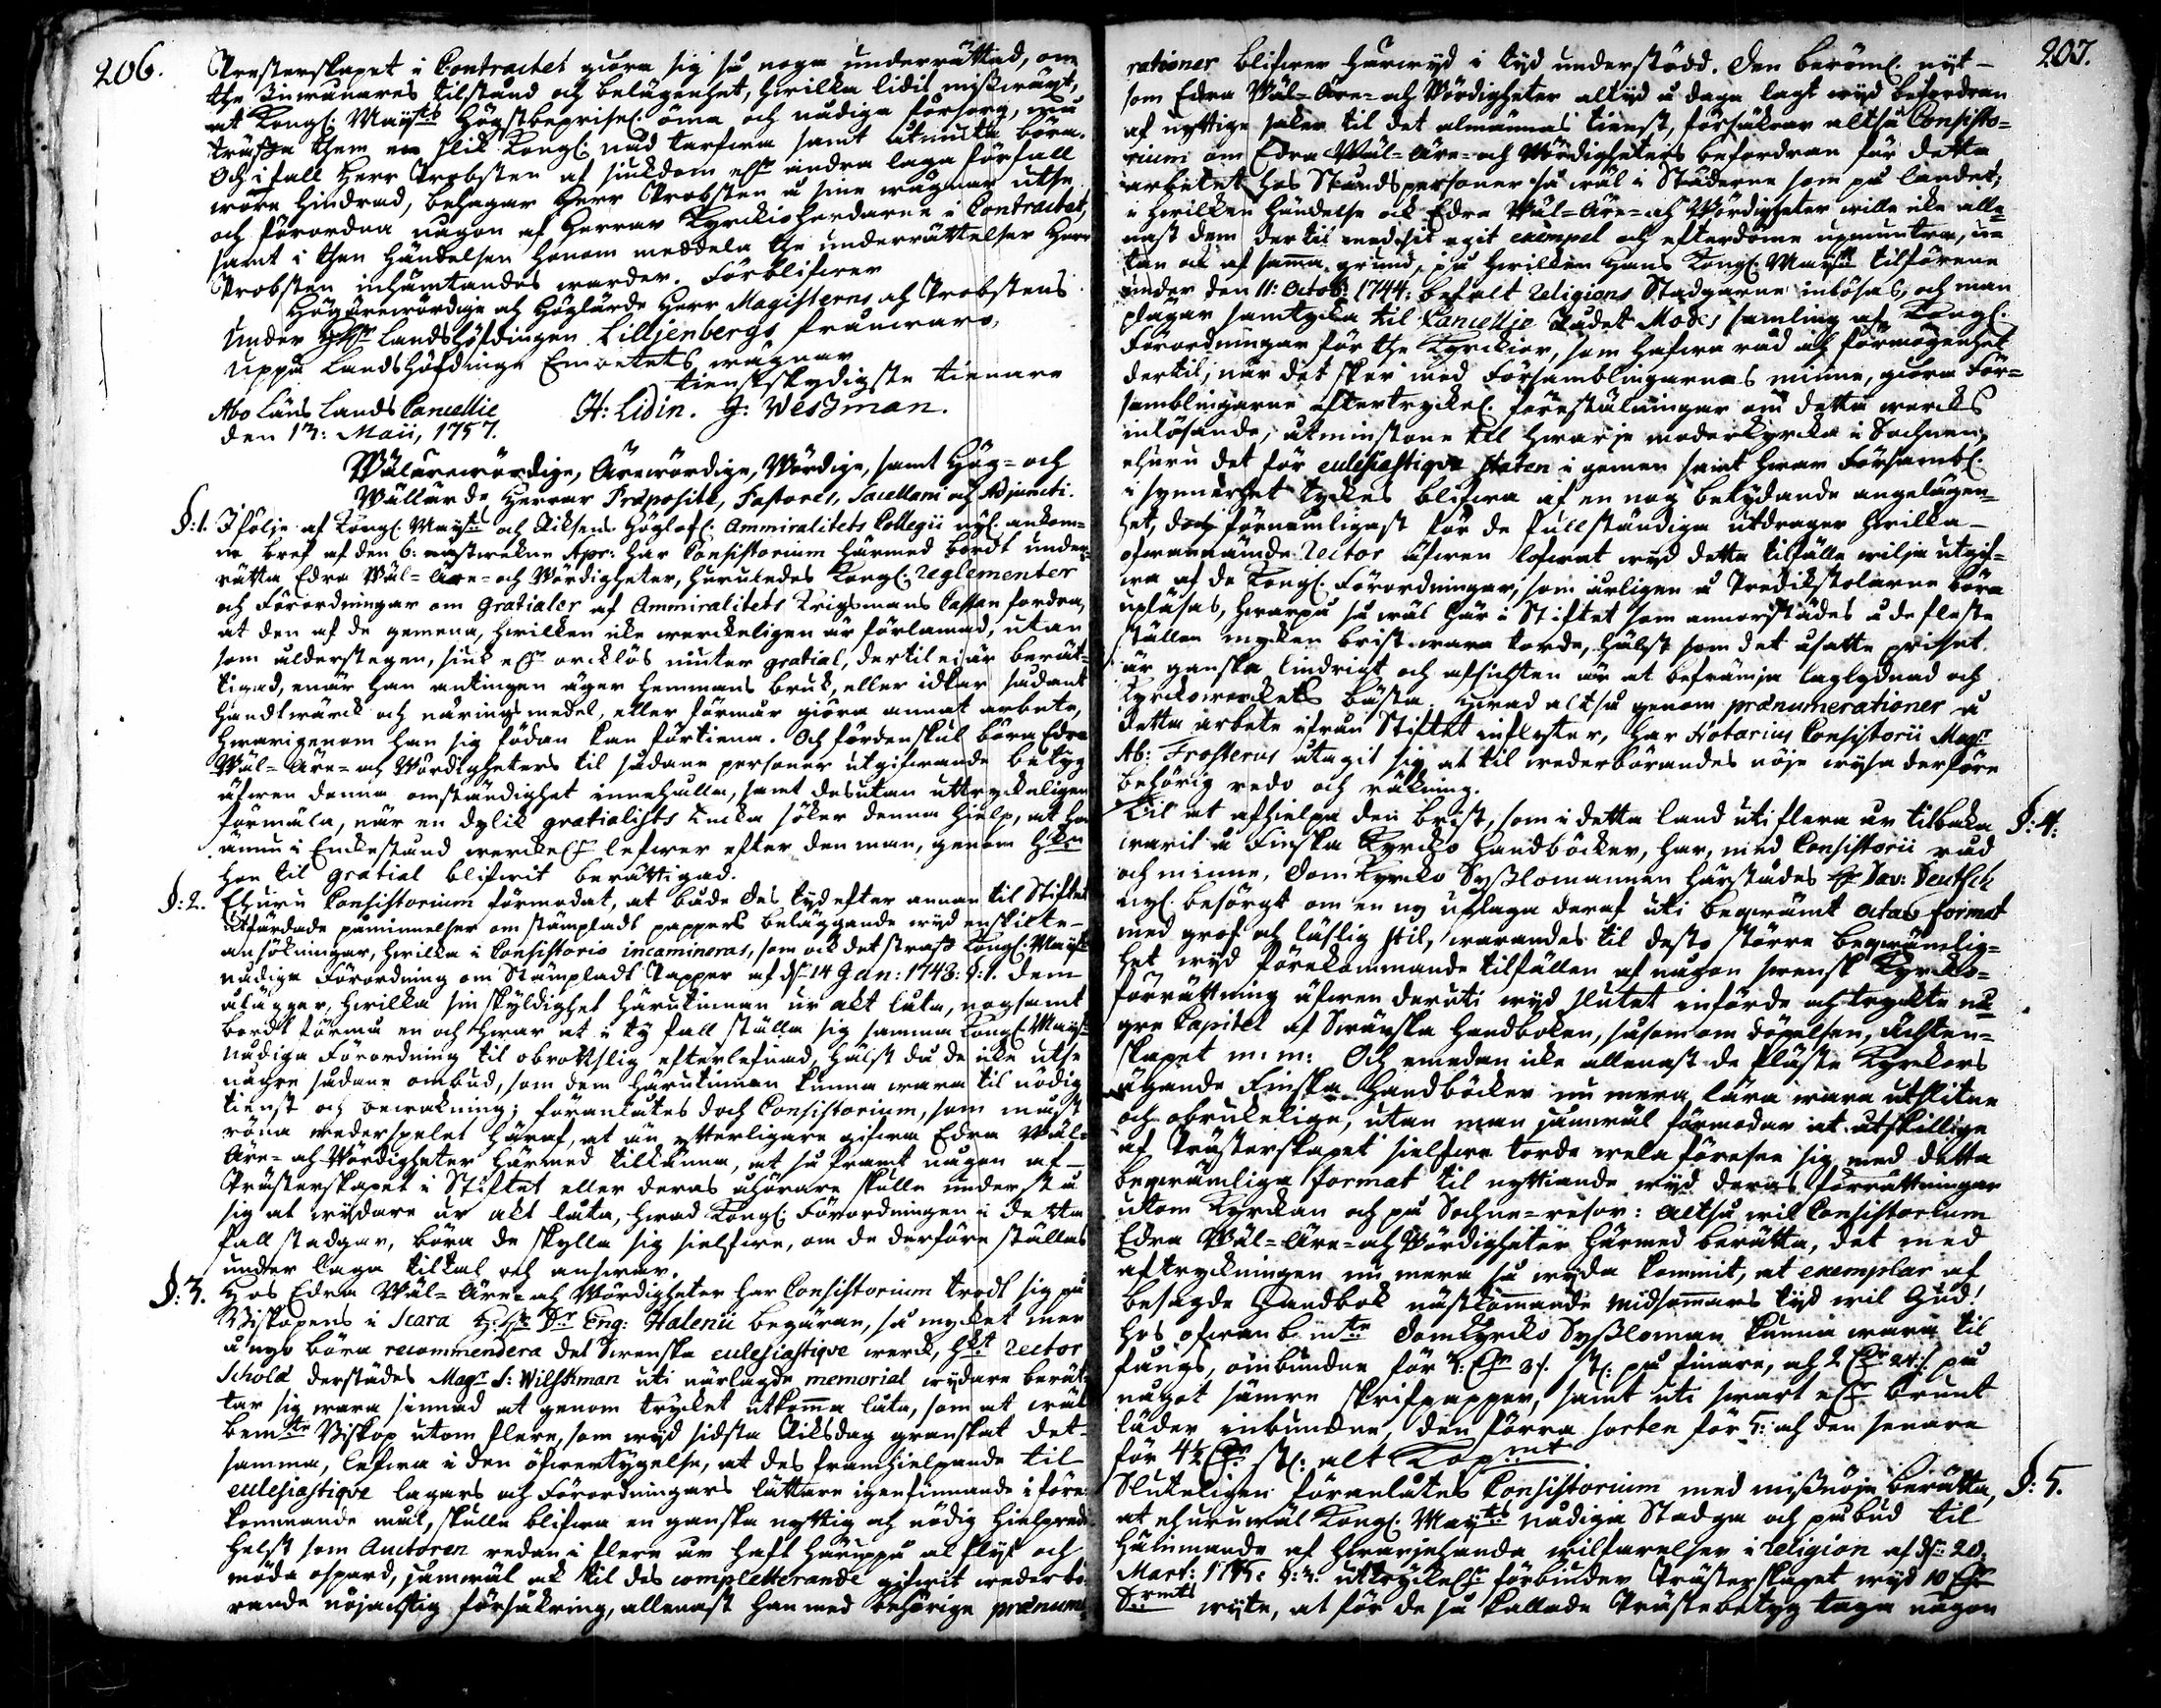 206.
Presterskapet i Contractet giöra sig så noga underrättad, om
the Inwånares tilstånd och belägenhet, hwilka lidit mißwäxt,
at Kongl: Maij:ts Högstbeprisel. öma och nådiga försorg, må
träffa them en slik Kongl: nåd tarfwa samt åtniuta böra.
Och i fall Herr Probsten af siukdom elr andra laga förfall
wore hindrad, behagar Herr Probsten å sine wägnar utse
och förordna någon af Herrar Kyrckioherdarne i Contractet,
samt i then händelsen honom meddela the underrättelser Herr
Probsten inhämtandes warder. Förblifwer
Högärewördige och Höglärde Herr Magisterns och Probstens
Under Hr Landshöfdingen Lilljenbergs frånwaro,
uppå Landshöfdinge Embetets wägnar
tienstskyldigste tienare
Abo Läns Lands Cancellie H: Lidin. G: Wesman.
den 13: Maii, 1757.
Wälärewördige, Ärewördige, Wördige, samt Hög= och
Wällärde Herrar Præpositi, Pastores, Sacellani och Adjuncti.
§:1. I följe af Kongl: Maij:ts och Riksens Höglofl. Ammiralitets Collegii nyl. ankom=
ne bref af den 6: nästwekne Apr: har Consistorium härmed bordt under=
rätta Edra Wäl= Äre= och Wördigheter, huruledes Kongl: Reglementer
och Förordningar om Gratialer af Ammiralitets Krigsmans Cassan fordra,
at den af de gemena, hwilken icke werckeligen är förlamad, utan
som ålderstegen, siuk elr orcklös niuter gratial, dertil ei är berät=
tigad, enär han antingen äger hemmans bruk, eller idkar sådant
handtwärck och närings medel, eller förmår giöra annat arbete,
hwarigenom han sig födan kan förtiena. Och fördenskul böra Edra
Wäl= Äre= och Wördigheters til sådane personer utgifwande betyg
äfwen denna omständighet innehålla, samt desutan uttryckeligen
förmäla, när en dylik gratialists Encka söker denna hielp, at hon
ännu i Enckestånd werckel:n lefwer efter den man, genom hken
hon til gratial blifwit berättigad.
§:2. Ehuru Consistorium förmodat, at både des tyd efter annan til Stiftet
utfärdade påminnelser om stämpladt pappers beläggande wyd enskilte
ansökningar, hwilka i Consistorio incamineras, som ock det straff Kongl: Maij:ts
nådiga Förordning om Stämpladt Papper af d: 14 Jan: 1748: §:1. dem
ålägger, hwilka sin skyldighet härutinnan ur akt låta, nogsamt
bordt förmå en och hwar at i ty fall ställa sig samma Kongl: Maij:ts
nådiga Förordning til obrottslig efterlefnad, hälst då de icke utse
någre sådane ombud, som dem härutinnan kunna wara til nödig
tienst och bewakning; föranlåtes doch Consistorium, som måst
röna wederspelet häraf, at än ytterligare gifwa Edra Wäl=
Äre= och Wördigheter härmed tilkänna, at så framt någon af
Prästerskapet i Stiftet eller deras åhörare skulle understå
sig at wydare ur akt låta, hwad Kongl: Förordningen i detta
fall stadgar, böra de skylla sig sielfwe, om de derföre ställas
under laga tiltal och answar.
§:3. Hos Edra Wäl= Äre= och Wördigheter har Consistorium trodt sig på
Biskopens i Scara H: Hr Dr Eng: Halenii begäran, så mycket mer
å nyo böra recommendera det Swenska eclesiastiqve werck, hket Rector
Scholæ derstädes Magr S: Wilskman uti närlagde memorial wydare berät=
tar sig wara sinnad at genom trycket utkomma låta, som at wäl
bem:te Biskop utom flere, som wyd sidsta Riksdag granskat det=
samma, lefwa i den öfwertygelse, at des framhielpande til
eclesiastiqve lagars och Förordningars lättare igenfinnande i före=
kommande mål, skulle blifwa en ganska nyttig och nödig hielpreda
helst som Auctoren redan i flere år haft häruppå al flyt och
möda ospard, jämwäl ock til des completterande gifwit wederbö=
rande nöjachtig försäkring, allenast han med behörige prænume=
207.
rationer blifwer härwyd i tyd understödd. Den beröml. nyt=
som Edra Wäl= Äre= och Wördigheter altyd å daga lagt wyd befordran
af nyttige saker til det almännas tienst, försäkrar altså Consisto=
rium om Edra Wäl= Äre= och Wördigheters befordran för detta
arbetet hos Ståndspersoner så wäl i Städerne som på landet;
i hwilken händelse ock Edra Wäl= Äre= och Wördigheter wille icke alle=
nast dem dertil med sit egit exempel och efterdöme upmuntra, u=
tan ock af samma grund, på hwilken Hans Kongl: Maij:t tilförene
under den 11: Octob: 1744: befalt Religions Stadgarne inlösas, och man
plägar samtycka til Cancellie Rådet Modées samling af Kongl.
Förordningar för the Kyrckior, som hafwa råd och förmögenhet
dertil, när det sker med Församblingarnes minne, giöra För=
samblingarne eftertryckel. föreställningar om detta wercks
inlösande, åtminstone til hwarje moderkyrcka i Sochnen,
ehuru det för eclesiastiqve staten i gemen samt hwar Försambl.
i synnerhet tyckes blifwa af en nog betydande angelägen=
het, doch förnemligast för de fullständiga utdrager hwilka
ofwannämde Rector äfwen lofwat wyd detta tilfälle wilja utgif=
wa af de Kongl. Förordningar, som årligen å Predikstolarne böra
upläsas, hwarpå så wäl här i Stiftet som annorstädes å de fleste
ställen mycken brist wara torde, hälst som det åsatte priset
är ganska lindrigt och afsichten är at befrämja laglydnad och
Kyrckowerckets bästa. Hwad altså genom prænumerationer å
detta arbete ifrån Stiftet inflyter, har Notarius Consistorii Magr
Ab: Frosterus åtagit sig at til wederbörandes nöje wysa derföre
behörig redo och räkning.
§:4. Til at afhielpa den brist, som i detta land uti flera år tilbaka
warit å Finska Kyrcko Handböcker, har, med Consistorii råd
och minne, Domkyrcko Sysslomannen härstädes Hr Dav: Deutsch
nyl. besörgt om en ny uplaga deraf uti beqwämt octav format
med grof och läslig stil, warandes til desto större beqwämlig=
het wyd förekommande tilfällen af någon swensk Kyrcko=
förrättning äfwen deruti wyd slutet införde och tryckte nå=
gre Capitel af Swänska Handboken, såsom om döpelsen, ächten=
skapet m: m: Och emedan icke allenast de fläste Kyrckors
ägande Finska Handböcker nu mera lära wara utslitne
och obrukelige, utan man jämwäl förmodar at åtskillige
af Prästerskapet sielfwe torde wela förese sig med detta
beqwämliga format til nyttiande wyd deras förrättningar
utom Kyrckan och på Sochne=resor: Altså wil Consistorium
Edra Wäl= Äre= och Wördigheter härmed berätta, det med
aftryckningen nu mera så wyda kommit, at exemplar af
besagde Handbok nästkommande midsommars tyd wil Gud!
hos ofwanbem:te Domkyrcko Syssloman kunna wara til
fångs, oinbundne för 3: på finare, och 2 24: på
något sämre skrifpapper, samt uti swart elr brunt
läder inbundne, den förra sorten för 5: och den senare
för 4½ st: alt Kop:mt
§:5. Sluteligen föranlåtes Consistorium med mißnöje berätta,
at ehuruwäl Kongl: Maij:ts nådiga Stadga och påbud til
hämmande af hwarjehanda willfarelser i Religion af d: 20:
Mart: 1735: §:3: uttryckel:n förbinder Prästerskapet wyd 10
S:rmts wyte, at för de så kallade Prästebetyg taga någon